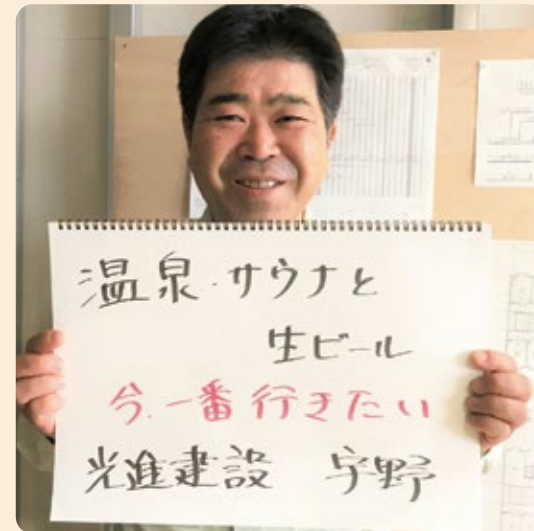 温泉・サウナと
生ビール
今、一番行きたい
光進建設 宇野